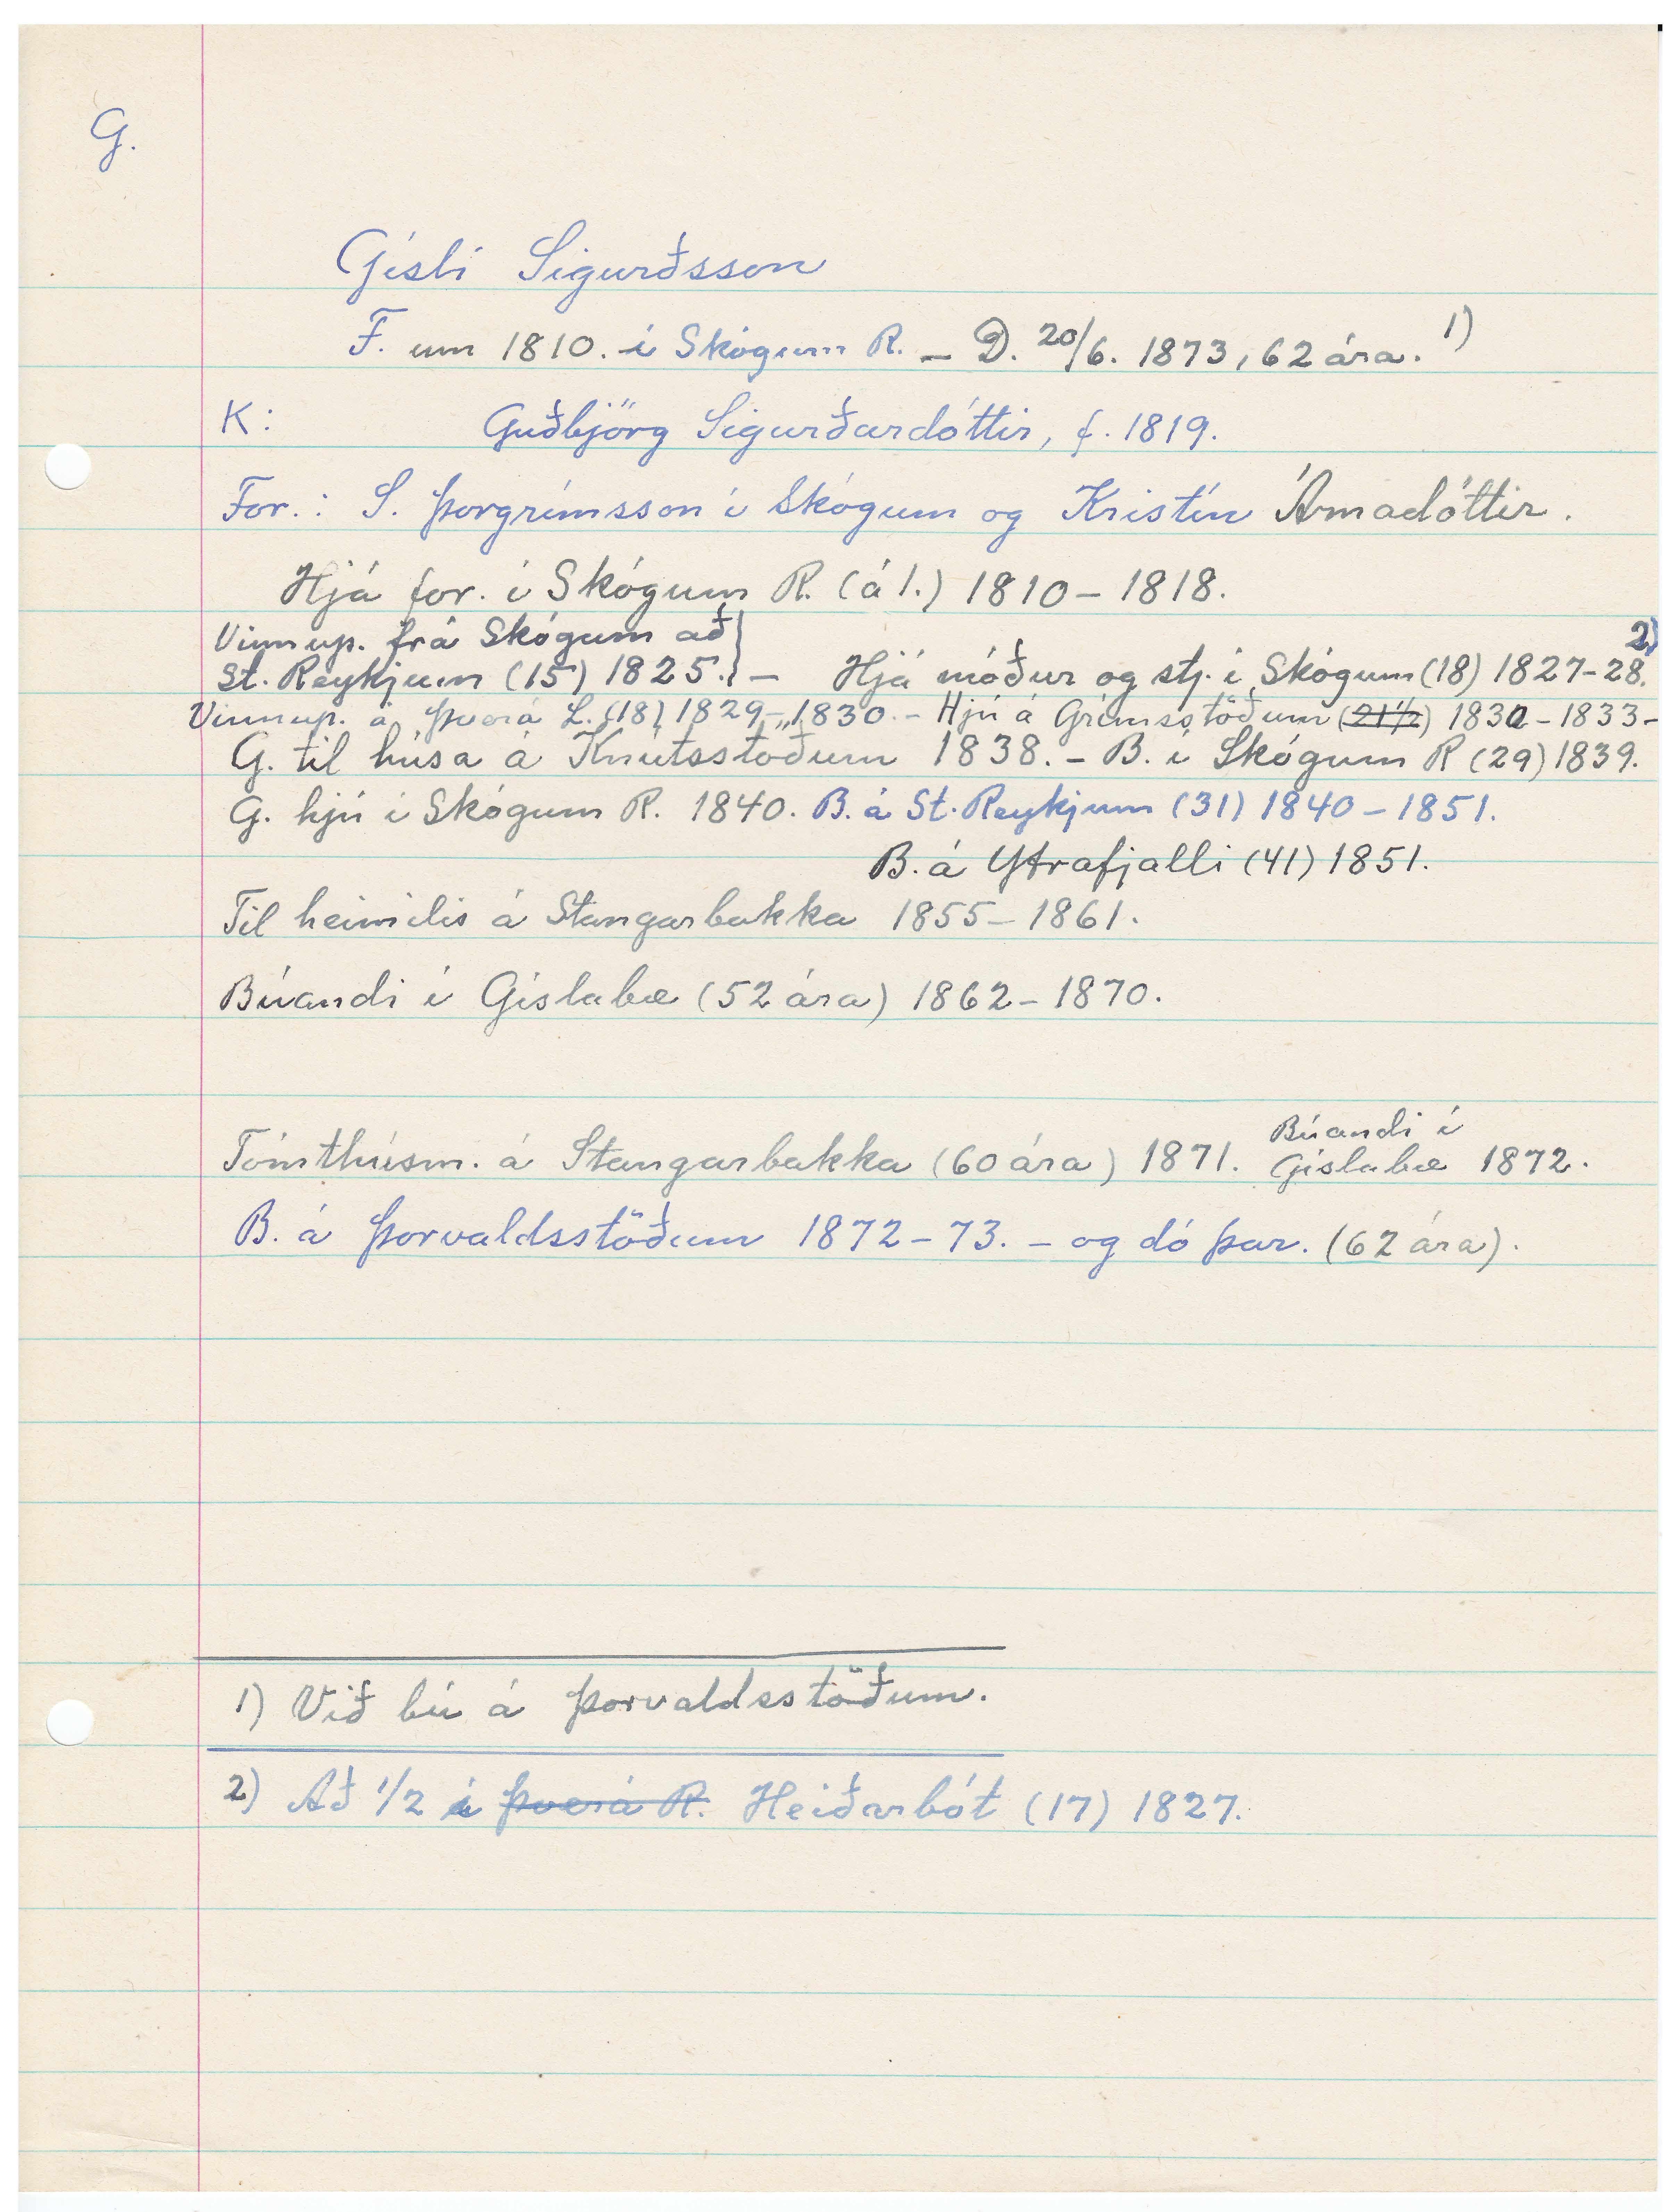 G.
Gísli Sigurðsson
F. um 1810. í Skógum R. – D. 20/6. 1873, 62 ára. 1)
K: Guðbjörg Sigurðardóttir, f. 1819.
For.: S. Þorgrímsson í Skógum og Kristín Árnadóttir.
Hjá for. í Skógum R. (á 1.) 1810 – 1818.
Vinnup. frá Skógum að
St. Reykjum (15) 1825. – Hjá móður og stj. í Skógum (18) 1827-28. 2)
Vinnup. á Þverá L. (18) 1829 – 1830. – Hjú á Grímsstöðum (21 1/2) 1830 – 1833 –
G. til húsa á Knútsstöðum 1838. – B. í Skógum R (29) 1839.
G. hjú í Skógum R. 1840. B. á St. Reykjum (31) 1840 – 1851.
B. á Ytrafjalli (41) 1851.
Til heimilis á Stangarbakka 1855 – 1861.
Búandi í Gíslabæ (52 ára) 1862 – 1870.
Tómthúsm. á Stangarbakka (60 ára) 1871. Búandi í
Gíslabæ 1872.
B. á Þorvaldsstöðum 1872 – 73. – og dó þar. (62 ára).
1) Við bú á Þorvaldsstöðum.
2) Að 1/2 í Þverá R. Heiðarbót (17) 1827.